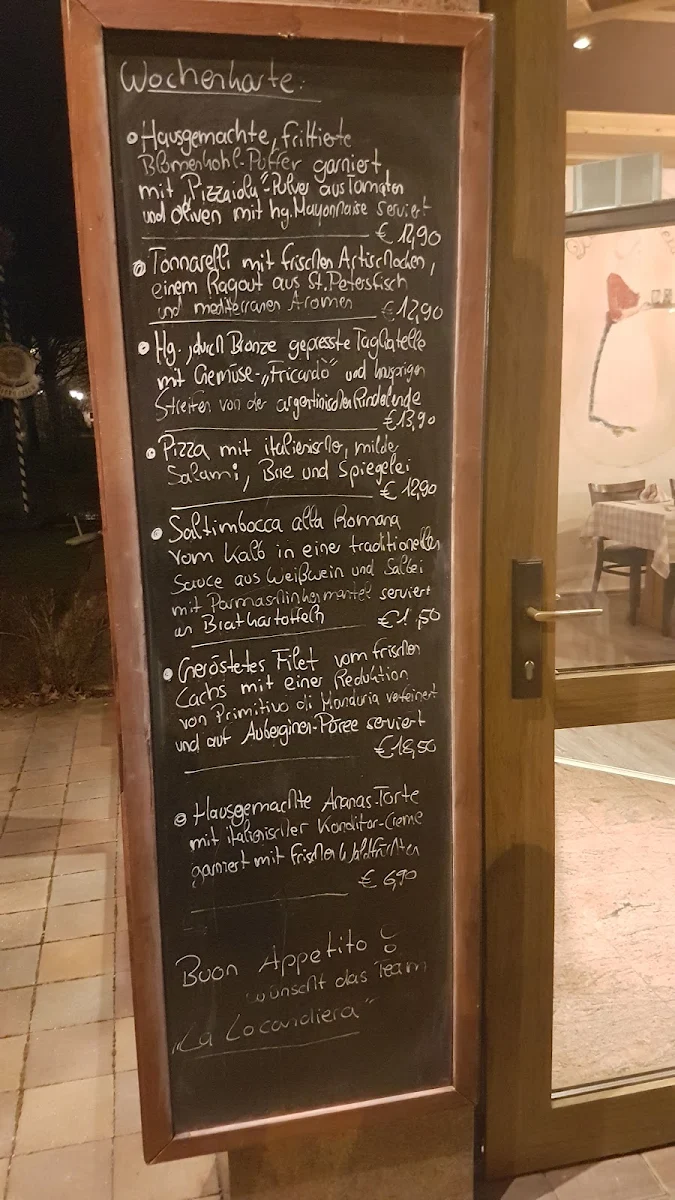 Wochenkarte:
Hausgemachte, frittierte
Blumenkohl-Puffer garniert
mit "Pizzaiola"-Pulver aus Tomaten
und Oliven mit hg. Mayonnaise serviert
€ 12,90
Tonnarelli mit frischen Artischocken,
einem Ragout aus St. Petersfisch
und mediterranen Aromen
€ 12,90
Hg., durch Bronze gepresste Tagliatelle
mit Gemüse-„Fricandò" und knusprigen
Streifen von der argentinischen Rinderlende
€ 13,90
Pizza mit italienische, milde
Salami, Brie und Spiegelei
€ 12,90
Saltimbocca alla Romana
vom Kalb in eine traditionellen
Sauce aus Weißwein und Salbei
mit Parmaschinkenmantel serviert
an Bratkartoffeln
€ 1 ,50
Geröstetes Filet vom frischen
Lachs mit einer Reduktion
von Primitivo di Manduria verfeinert
und auf Auberginen-Püree serviert
€ 18,50
Hausgemachte Ananas-Torte
mit italienischer Konditor-Creme
garniert mit frischen Waldfrüchten
€ 6,90
Buon Appetito
wünscht das Team
„La Locandiera"